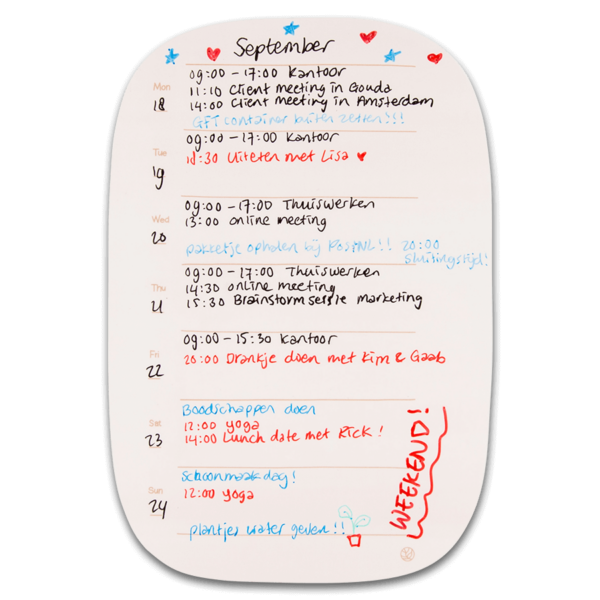 September
Mon
18
09:00 - 17:00 Kantoor
11:10 Client meeting in Gouda
14:00 Client meeting in Amsterdam
GFT container buiten zetten!!!
Tue
19
09:00 - 17:00 Kantoor
18:30 Uiteten met Lisa
Wed
20
09:00 - 17:00 Thuiswerken
13:00 online meeting
pakketje ophalen bij PostNL!! 20:00
Sluitingstijd!
Thu
21
09:00 - 17:00 Thuiswerken
14:30 online meeting
15:30 Brainstorm sessie marketing
Fri
22
09:00 - 15:30 Kantoor
20:00 Drankje doen met Kim & Gaab
Sat
23
Boodschappen doen
12:00 yoga
14:00 Lunch date met Rick!
Sun
24
Schoonmaakdag!
12:00 yoga
plantjes water geven!!
WEEKEND!